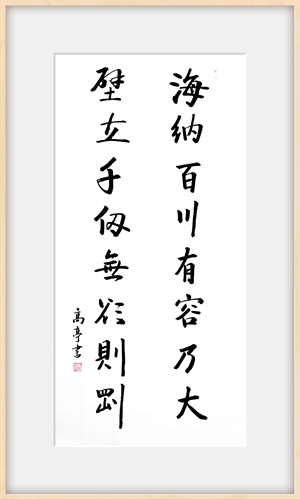 海納百川有容乃大
壁立千仞無欲則剛
高亭書